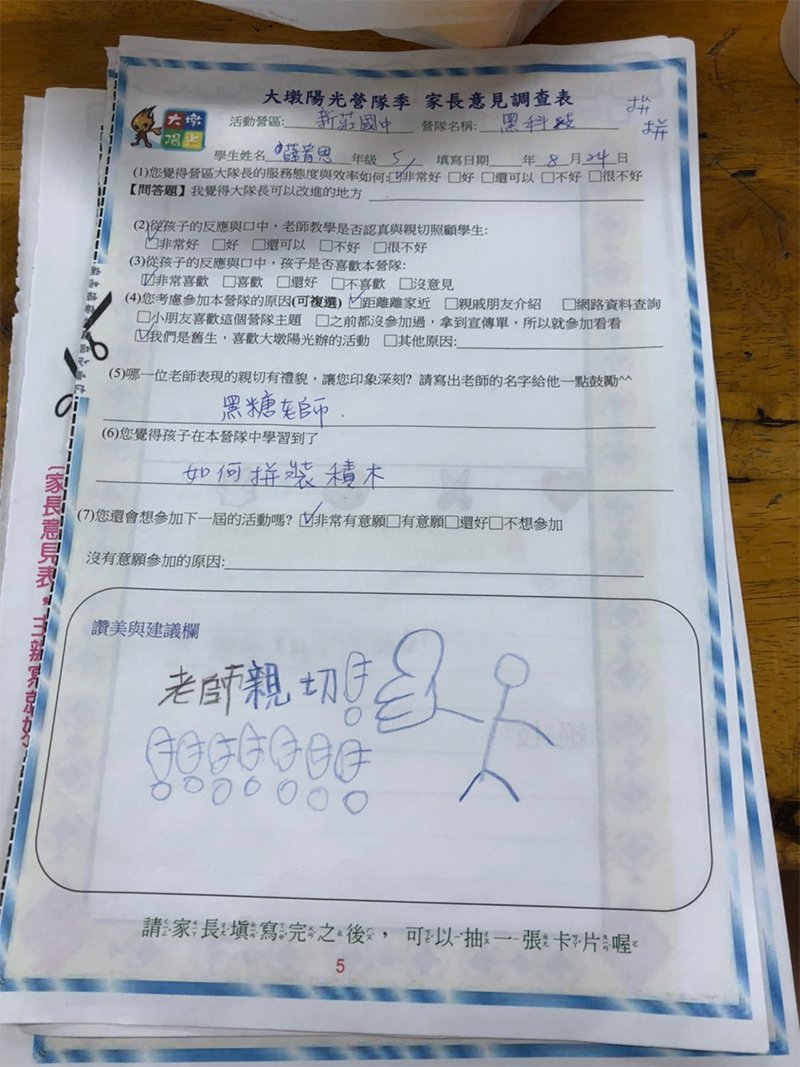 大墩陽光營隊季 家長意見調查表
拚
拼
大墩
陽光
活動營區: 新莊國中 營隊名稱: 黑科技
學生姓名 薛首恩 年級 5 填寫日期 年 8 月 24 日
(1)您覺得營區大隊長的服務態度與效率如何:☑非常好 □好 □還可以 □不好 □很不好
【問答題】我覺得大隊長可以改進的地方
(2)從孩子的反應與口中，老師教學是否認真與親切照顧學生:
☑非常好 □好 □還可以 □不好 □很不好
(3)從孩子的反應與口中，孩子是否喜歡本營隊:
☑非常喜歡 □喜歡 □還好 □不喜歡 □沒意見
(4)您考慮參加本營隊的原因(可複選) ☑距離離家近 □親戚朋友介紹 □網路資料查詢
□小朋友喜歡這個營隊主題 □之前都沒參加過，拿到宣傳單，所以就參加看看
☑我們是舊生，喜歡大墩陽光辦的活動 □其他原因:
(5)哪一位老師表現的親切有禮貌，讓您印象深刻? 請寫出老師的名字給他一點鼓勵^^
黑糖老師.
(6)您覺得孩子在本營隊中學習到了
如何拼裝積木
(7)您還會想參加下一屆的活動嗎? ☑非常有意願□有意願□還好□不想參加
沒有意願參加的原因:
讚美與建議欄
老師親切!
!!!!!!!
請家長填寫完之後，可以抽一張卡片喔
5
家長意見表，